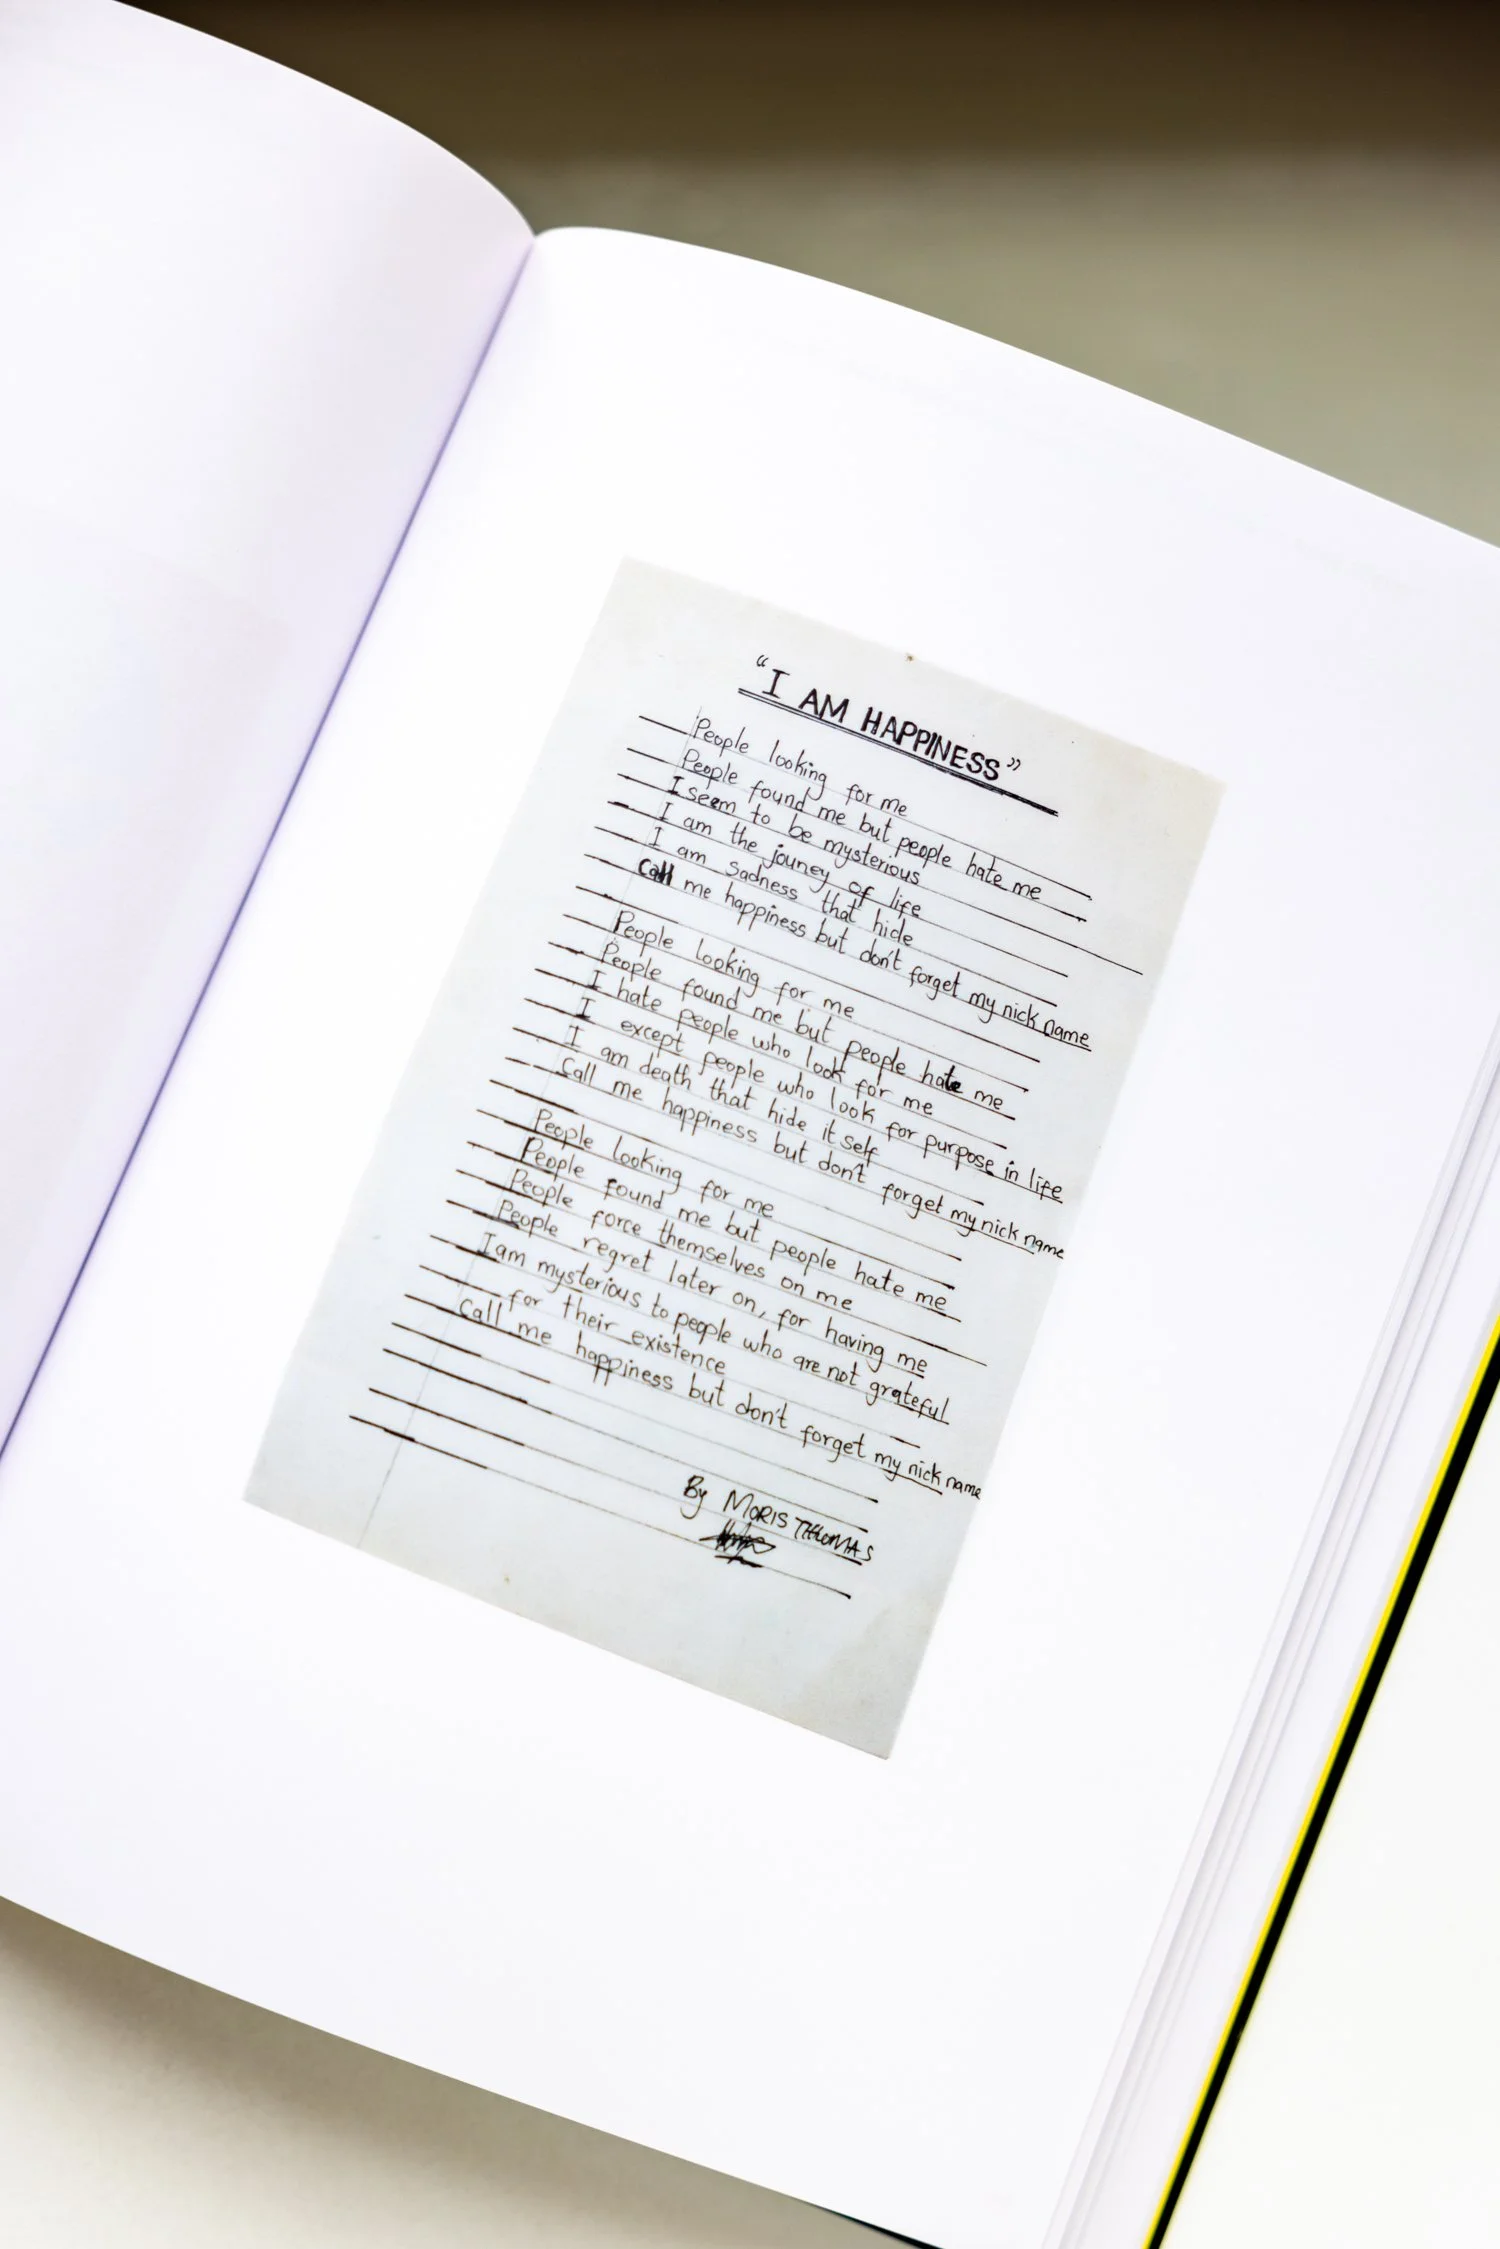 “I AM HAPPINESS”
People looking for me
People found me but people hate me
I seem to be mysterious
I am the jouney of life
I am sadness that hide
Call me happiness but don't forget my nick name
People looking for me
People found me but people hate me
I hate people who look for me
I except people who look for purpose in life
I am death that hide it self
Call me happiness but don't forget my nick name
People looking for me
People found me but people hate me
People force themselves on me
People regret later on, for having me
I am mysterious to people who are not grateful
for their existence
Call me happiness but don't forget my nick name
By MORIS THOMAS